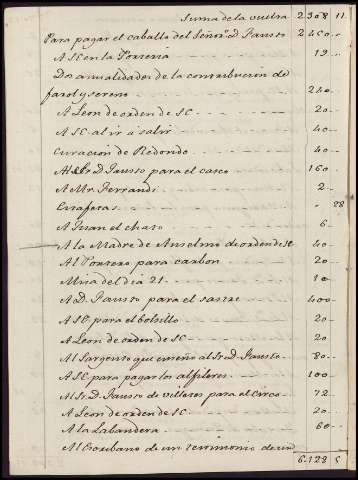 Suma de la vuelta 2.308 11
Para pagar el caballo del Señor D. Fausto 2450
A SE en la Porteria 19
Dos anualidades de la contribucion de
farol y sereno 240
A Leon de orden de SE 20
A SE al ir a salir 40
Curacion de Redondo 40
Al Sr. D. Fausto para el casco 160
A Mr. Ferrandi 2
Estafetas 28
A Juan el chato 6
A la Madre de Anselmo de orden de SE 40
Al Portero para carbon 20
Misa del dia 21
A D. Fausto para el sastre 400
A SE para el bolsillo 20
A Leon de orden de SE 20
Al Sargento que enseña al Sr. D. Fausto 80
A SE para pagar los alfileres 100
Al Sr. D. Fausto de villetes para el Circo 72
A Leon de orden de SE 20
A la Labandera 60
Al Escribano de un testimonio de
6.128 5